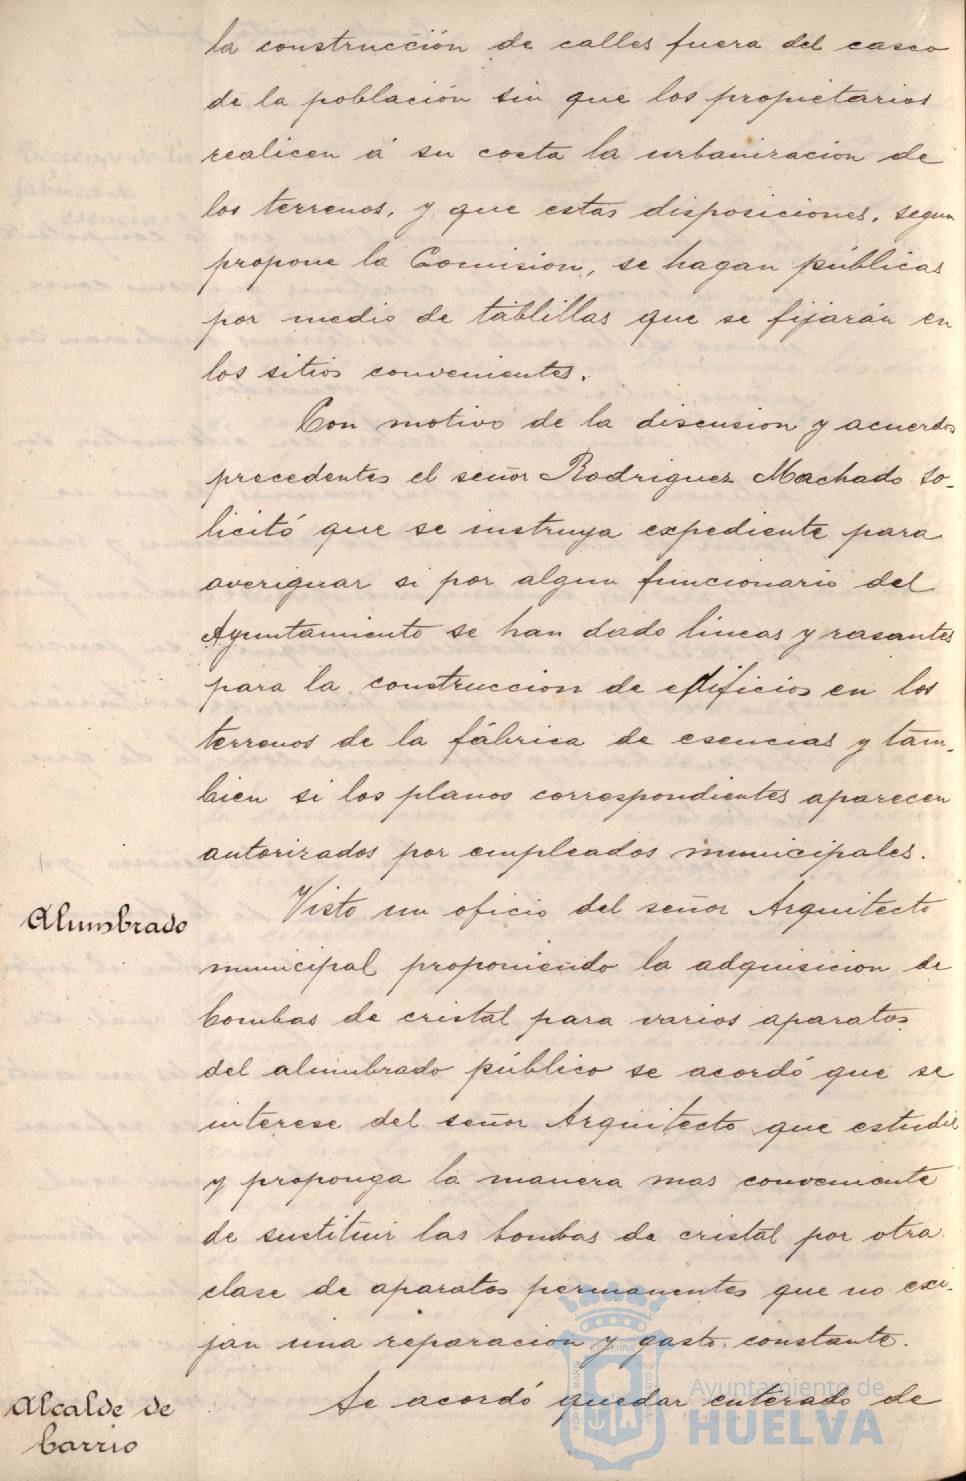 la construcción de calles fuera del casco
de la población sin que los propietarios
realicen á su costa la urbanizacion de
los terrenos, y que estas disposiciones, segun
propone la Comision, se hagan públicas
por medio de tablillas que se fijarán en
los sitios convenientes.
Con motivo de la discusion y acuerdos
precedentes el señor Rodriguez Machado so-
licitó que se instruya expediente para
averiguar si por algun funcionario del
Ayuntamiento se han dado lineas y rasantes
para la construccion de edificios en los
terrenos de la fábrica de esencias y tam-
bien si los planos correspondientes aparecen
autorizados por empleados municipales.
Alumbrado
Visto un oficio del señor Arquitecto
municipal proponiendo la adquisicion de
bombas de cristal para varios aparatos
del alumbrado público se acordó que se
interese del señor Arquitecto que estudie
y proponga la manera mas conveniente
de sustituir las bombas de cristal por otra
clase de aparatos permanentes que no exi-
jan una reparacion y gasto constante.
Alcalde de
barrio
Se acordó quedar enterado de
Ayuntamiento de
HUELVA